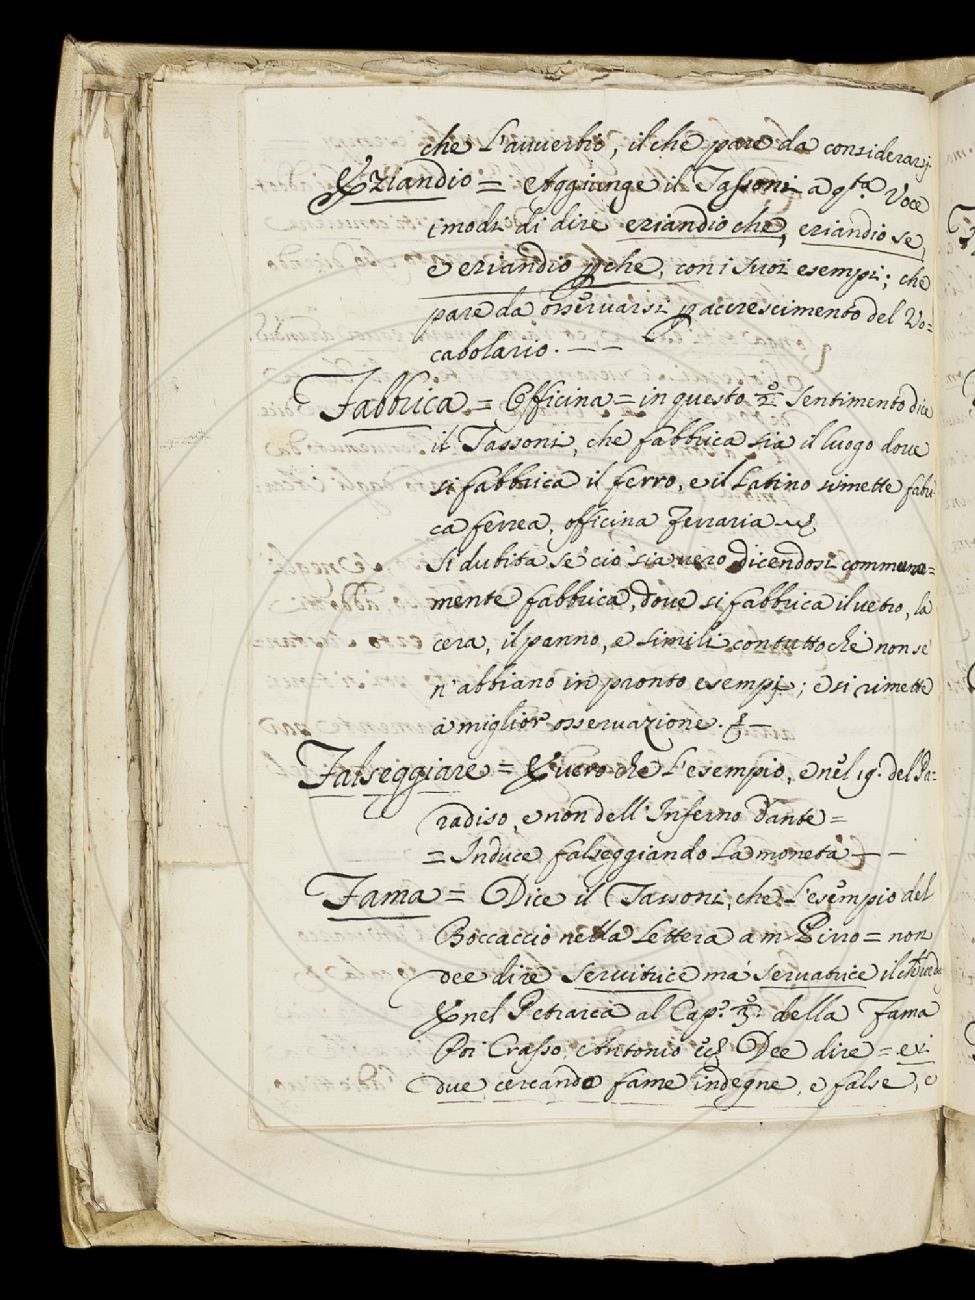 che l'avverbio, il che pare da considerarsi
Eziandio = Aggiunge il Tassoni a q.ta Voce
i modi di dire eziandio che, eziandio se,
e eziandio p che, con i suoi esempi; che
pare da osservarsi p accrescimento del Vo=
cabolario. — —
Fabbrica = Officina = in questo 2.o sentimento dice
il Tassoni, che fabbrica sia il luogo dove
si fabbrica il ferro, e il Latino rimette fabri
ca ferrea, officina ferraria
Si dubita se ciò sia vero dicendosi commune=
mente fabbrica, dove si fabbrica il vetro, la
cera, il panno, e simili contuttoche non se
n'abbiano in pronto esempj; e si rimette
a miglior osservazione. —
Falseggiare = E vero che l'esempio, è nel 19. del Pa=
radiso, e non dell'Inferno Dante =
= Induce falseggiando la moneta — —
Fama = Dice il Tassoni, che l'esempio del
Boccaccio nella Lettera a m Pino = non
dee dire servitrice ma servatrice il che
E nel Petrarca al Cap.o 3.o della Fama
Poi Crasso, Antonio Dee dire = ei
due cercando fame indegne, e false, e